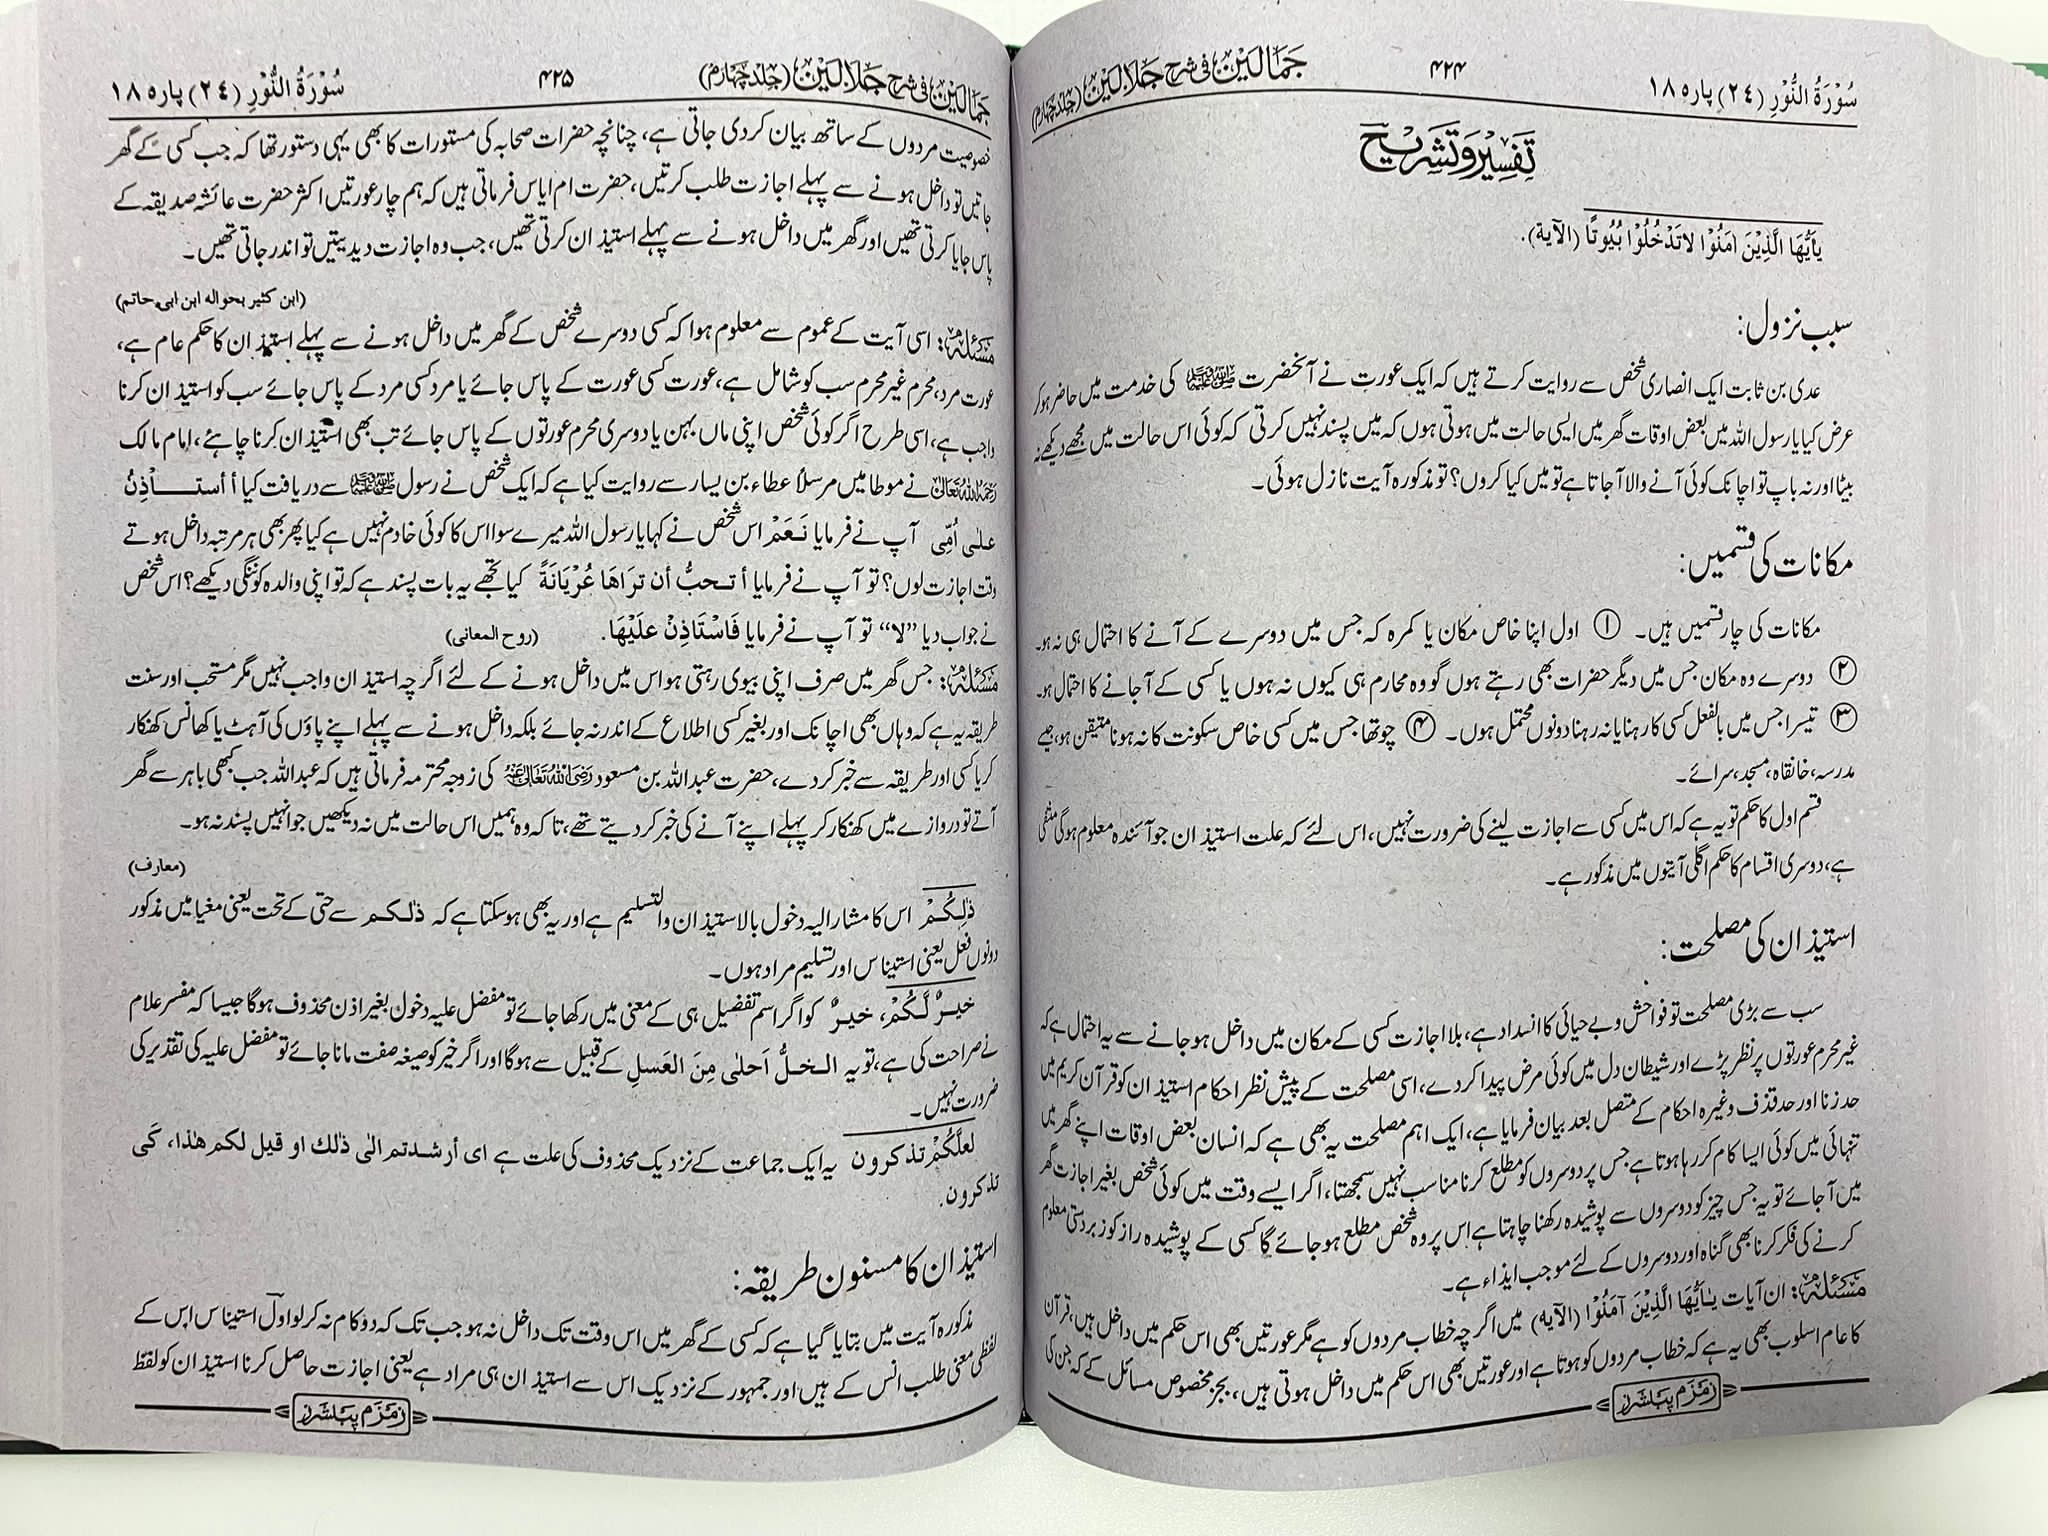 سُوْرَةُ النُّوْرِ (٢٤) پاره ١٨
۴۲۴
جَمَالَيْن فی شرح جَلَالَيْن (جلد چہارم)
تَفسِیْر وَتَشریح
یٰٓاَیُّهَا الَّذِیْنَ اٰمَنُوْا لاَ تَدْخُلُوْا بُیُوتًا (الآیة).
سبب نزول:
عدی بن ثابت ایک انصاری شخص سے روایت کرتے ہیں کہ ایک عورت نے آنحضرت ﷺ کی خدمت میں حاضر ہوکر
عرض کیا یا رسول اللہ میں بعض اوقات گھر میں ایسی حالت میں ہوتی ہوں کہ میں پسند نہیں کرتی کہ کوئی اس حالت میں مجھے دیکھے نہ
بیٹا اور نہ باپ تو اچانک کوئی آنے والا آجاتا ہے تو میں کیا کروں؟ تو مذکورہ آیت نازل ہوئی۔
مکانات کی قسمیں:
مکانات کی چار قسمیں ہیں۔ ① اول اپنا خاص مکان یا کمرہ کہ جس میں دوسرے کے آنے کا احتمال ہی نہ ہو۔
② دوسرے وہ مکان جس میں دیگر حضرات بھی رہتے ہوں گو وہ محارم ہی کیوں نہ ہوں یا کسی کے آجانے کا احتمال ہو۔
③ تیسرا جس میں بالفعل کسی کا رہنا یا نہ رہنا دونوں محتمل ہوں۔ ④ چوتھا جس میں کسی خاص سکونت کا نہ ہونا متیقن ہو، جیسے
مدرسہ، خانقاہ، مسجد، سرائے۔
قسم اول کا حکم تو یہ ہے کہ اس میں کسی سے اجازت لینے کی ضرورت نہیں، اس لئے کہ علت استیذان جو آئندہ معلوم ہوگی منتفی
ہے، دوسری اقسام کا حکم اگلی آیتوں میں مذکور ہے۔
استیذان کی مصلحت:
سب سے بڑی مصلحت تو فواحش و بے حیائی کا انسداد ہے، بلا اجازت کسی کے مکان میں داخل ہو جانے سے یہ احتمال ہے کہ
غیر محرم عورتوں پر نظر پڑے اور شیطان دل میں کوئی مرض پیدا کر دے، اسی مصلحت کے پیش نظر احکام استیذان کو قرآن کریم میں
حد زنا اور حد قذف وغیرہ احکام کے متصل بعد بیان فرمایا ہے، ایک اہم مصلحت یہ بھی ہے کہ انسان بعض اوقات اپنے گھر میں
تنہائی میں کوئی ایسا کام کر رہا ہوتا ہے جس پر دوسروں کو مطلع کرنا مناسب نہیں سمجھتا، اگر ایسے وقت میں کوئی شخص بغیر اجازت گھر
میں آجائے تو یہ جس چیز کو دوسروں سے پوشیدہ رکھنا چاہتا ہے اس پر وہ شخص مطلع ہو جائے گا کسی کے پوشیدہ راز کو زبردستی معلوم
کرنے کی فکر کرنا بھی گناہ اور دوسروں کے لئے موجب ایذاء ہے۔
مسئلہ: ان آیات یٰٓاَیُّهَا الَّذِیْنَ آمَنُوْا (الآیه) میں اگرچہ خطاب مردوں کو ہے مگر عورتیں بھی اس حکم میں داخل ہیں، قرآن
کا عام اسلوب بھی یہ ہے کہ خطاب مردوں کو ہوتا ہے اور عورتیں بھی اس حکم میں داخل ہوتی ہیں، بجز مخصوص مسائل کے کہ جن کی
زمزم پبلشرز
جَمَالَيْن فی شرح جَلَالَيْن (جلد چہارم)
۴۲۵
سُوْرَةُ النُّوْرِ (٢٤) پاره ١٨
خصوصیت مردوں کے ساتھ بیان کر دی جاتی ہے، چنانچہ حضرات صحابہ کی مستورات کا بھی یہی دستور تھا کہ جب کسی کے گھر
جاتیں تو داخل ہونے سے پہلے اجازت طلب کرتیں، حضرت ام ایاس فرماتی ہیں کہ ہم چار عورتیں اکثر حضرت عائشہ صدیقہ کے
پاس جایا کرتی تھیں اور گھر میں داخل ہونے سے پہلے استیذان کرتی تھیں، جب وہ اجازت دیدیتیں تو اندر جاتی تھیں۔
(ابن کثیر بحواله ابن ابی حاتم)
مسئلہ: اسی آیت کے عموم سے معلوم ہوا کہ کسی دوسرے شخص کے گھر میں داخل ہونے سے پہلے استیذان کا حکم عام ہے،
عورت مرد، محرم غیر محرم سب کو شامل ہے، عورت کسی عورت کے پاس جائے یا مرد کسی مرد کے پاس جائے سب کو استیذان کرنا
واجب ہے، اسی طرح اگر کوئی شخص اپنی ماں بہن یا دوسری محرم عورتوں کے پاس جائے تب بھی استیذان کرنا چاہئے، امام مالک
رحمہ اللہ تعالیٰ نے موطا میں مرسلاً عطاء بن یسار سے روایت کیا ہے کہ ایک شخص نے رسول ﷺ سے دریافت کیا أ أستــأذِنُ
علٰی اُمِّی آپ نے فرمایا نَـعَمْ اس شخص نے کہا یا رسول اللہ میرے سوا اس کا کوئی خادم نہیں ہے کیا پھر بھی ہر مرتبہ داخل ہوتے
وقت اجازت لوں؟ تو آپ نے فرمایا أ تحبُّ أن تَرَاهَا عُرْیَانَةً کیا تجھے یہ بات پسند ہے کہ تو اپنی والدہ کو ننگی دیکھے؟ اس شخص
نے جواب دیا ”لا“ تو آپ نے فرمایا فَاسْتَاذِنْ عَلَیْهَا. (روح المعانی)
مسئلہ: جس گھر میں صرف اپنی بیوی رہتی ہو اس میں داخل ہونے کے لئے اگرچہ استیذان واجب نہیں مگر مستحب اور سنت
طریقہ یہ ہے کہ وہاں بھی اچانک اور بغیر کسی اطلاع کے اندر نہ جائے بلکہ داخل ہونے سے پہلے اپنے پاؤں کی آہٹ یا کھانس کھنکار
کر یا کسی اور طریقہ سے خبر کردے، حضرت عبداللہ بن مسعود رضی اللہ تعالیٰ عنہ کی زوجہ محترمہ فرماتی ہیں کہ عبداللہ جب کبھی باہر سے گھر
آتے تو دروازے میں کھنکار کر پہلے اپنے آنے کی خبر کر دیتے تھے، تاکہ وہ ہمیں اس حالت میں نہ دیکھیں جو انہیں پسند نہ ہو۔
(معارف)
ذٰلِکُمْ اس کا مشار الیہ دخول بالاستیذان والتسلیم ہے اور یہ بھی ہوسکتا ہے کہ ذٰلکم سے حتی کے تحت یعنی مغیا میں مذکور
دونوں فعل یعنی استیناس اور تسلیم مراد ہوں۔
خیرٌ لَّکُمْ، خیرٌ کو اگر اسم تفضیل ہی کے معنی میں رکھا جائے تو مفضل علیہ دخول بغیر اذن محذوف ہوگا جیسا کہ مفسر علام
نے صراحت کی ہے، تو یہ الـخلُّ اَحلٰی مِنَ العَسلِ کے قبیل سے ہوگا اور اگر خیر کو صیغہ صفت مانا جائے تو مفضل علیہ کی تقدیر کی
ضرورت نہیں۔
لعلَّکُمْ تذکرون یہ ایک جماعت کے نزدیک محذوف کی علت ہے ای أرشدتم الٰی ذٰلك او قیل لکم هٰذا، کَی
تذکرون.
استیذان کا مسنون طریقہ:
مذکورہ آیت میں بتایا گیا ہے کہ کسی کے گھر میں اس وقت تک داخل نہ ہو جب تک کہ دو کام نہ کرلو اول استیناس اس کے
لفظی معنی طلب انس کے ہیں اور جمہور کے نزدیک اس سے استیذان ہی مراد ہے یعنی اجازت حاصل کرنا استیذان کو لفظ
زمزم پبلشرز